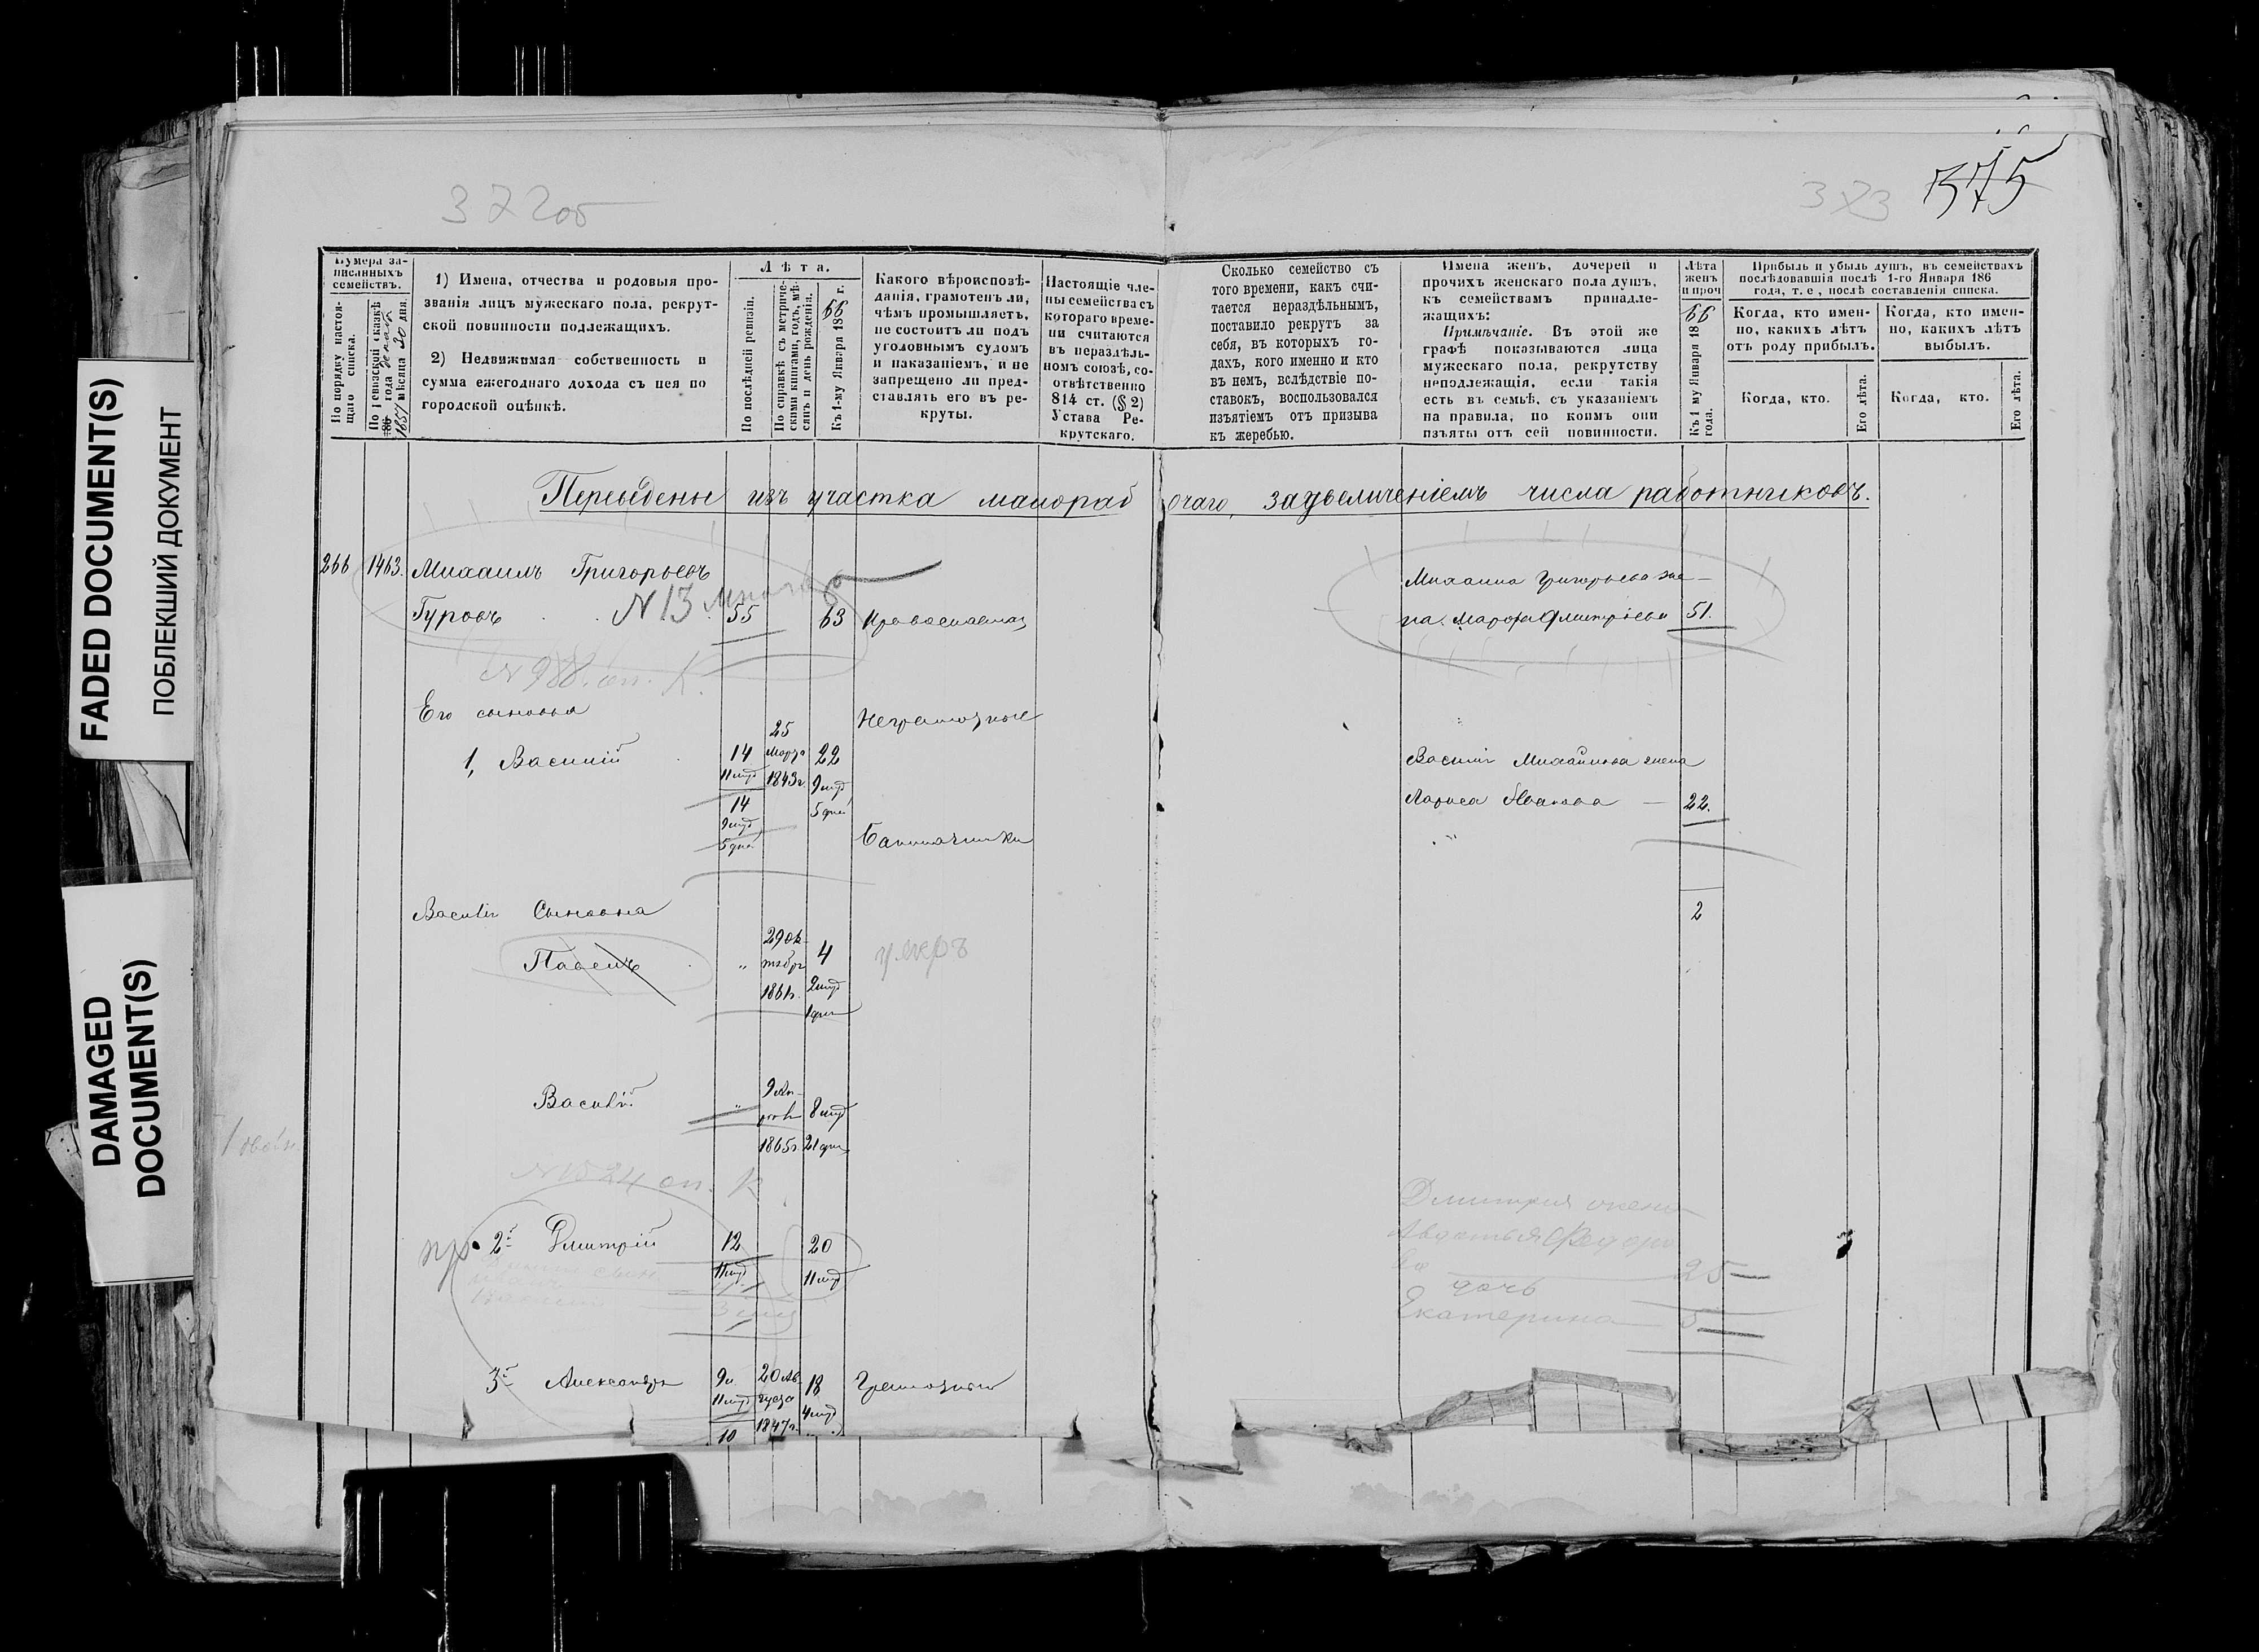 FADED DOCUMENT(S)
ПОБЛЕКШИЙ ДОКУМЕНТ
DAMAGED
DOCUMENT(S)
372 об
373 375
Нумера за-
писанныхъ
семействъ.
По порядку настоя-
щаго списка.
По ревизской сказкѣ
1857 года
мѣсяца 20 дня.
1) Имена, отчества и родовыя про-
званія лицъ мужескаго пола, рекрут-
ской повинности подлежащихъ.
2) Недвижимая собственность и
сумма ежегоднаго дохода съ нея по
городской оцѣнкѣ.
Лѣта.
По послѣдней ревизіи.
По справкѣ съ метриче-
скими книгами, годъ, мѣ-
сяцъ и день рожденія.
Къ 1-му Января 1866 г.
Какого вѣроисповѣ-
данія, грамотенъ ли,
чѣмъ промышляетъ,
не состоитъ ли подъ
уголовнымъ судомъ
и наказаніемъ, и не
запрещено ли пред-
ставлять его въ ре-
круты.
Настоящіе чле-
ны семейства съ
котораго време-
ни считаются
въ нераздѣль-
номъ союзѣ, со-
отвѣтственно
814 ст. (§ 2)
Устава Ре-
крутскаго.
Сколько семейство съ
того времени, какъ счи-
тается нераздѣльнымъ,
поставило рекрутъ за
себя, въ которыхъ го-
дахъ, кого именно и кто
въ немъ, вслѣдствіе по-
ставокъ, воспользовался
изъятіемъ отъ призыва
къ жеребью.
Имена женъ, дочерей и
прочихъ женскаго пола душъ,
къ семействамъ принадле-
жащихъ:
Примѣчаніе. Въ этой же
графѣ показываются лица
мужескаго пола, рекрутству
неподлежащія, если такія
есть въ семьѣ, съ указаніемъ
на правила, по коимъ они
изъяты отъ сей повинности.
Лѣта
женъ
и проч
Къ 1 му Января 1866
года.
Прибыль и убыль душъ, въ семействахъ
послѣдовавшія послѣ 1-го Января 186
года, т. е , послѣ составленія списка.
Когда, кто имен-
но, какихъ лѣтъ
отъ роду прибылъ.
Когда, кто имен-
но, какихъ лѣтъ
выбылъ.
Когда, кто.
Его лѣта.
Когда, кто.
Его лѣта.
Переведены изъ участка малорабочаго, за увеличеніемъ числа работниковъ.
266 1463. Михаилъ Григорьевъ
Гуровъ N 13 55 63 Православнаго
Михаила Григорьева же-
на Марфа Дмитріева 51.
N 988. оп. К.
Его сыновья Неграмотные
1, Василій 14 11 мѣс 25 Марта 1843 г. 22 9 мѣс 5 дней
14 9 мѣс 5 дней
Василія Михайлова жена
Лариса Иванова — 22.
Василія Сыновья
2
Павелъ „ 29 Ок-
тября 1861 г. 4 2 мѣс 1 день умеръ
Василій „ 9 Ап-
рѣля 1865 г. 8 мѣс 21 день
N 1524 оп. К
пр. 2й Дмитрій 12 11 мѣс 20 11 мѣс
Дмитрія жена
Авдотья Федоро
ва 25
дочь
Екатерина 5
3й Александръ 9 л 11 мѣс 20 Ав-
густа 1847 г. 18 4 мѣс Грамотный
10